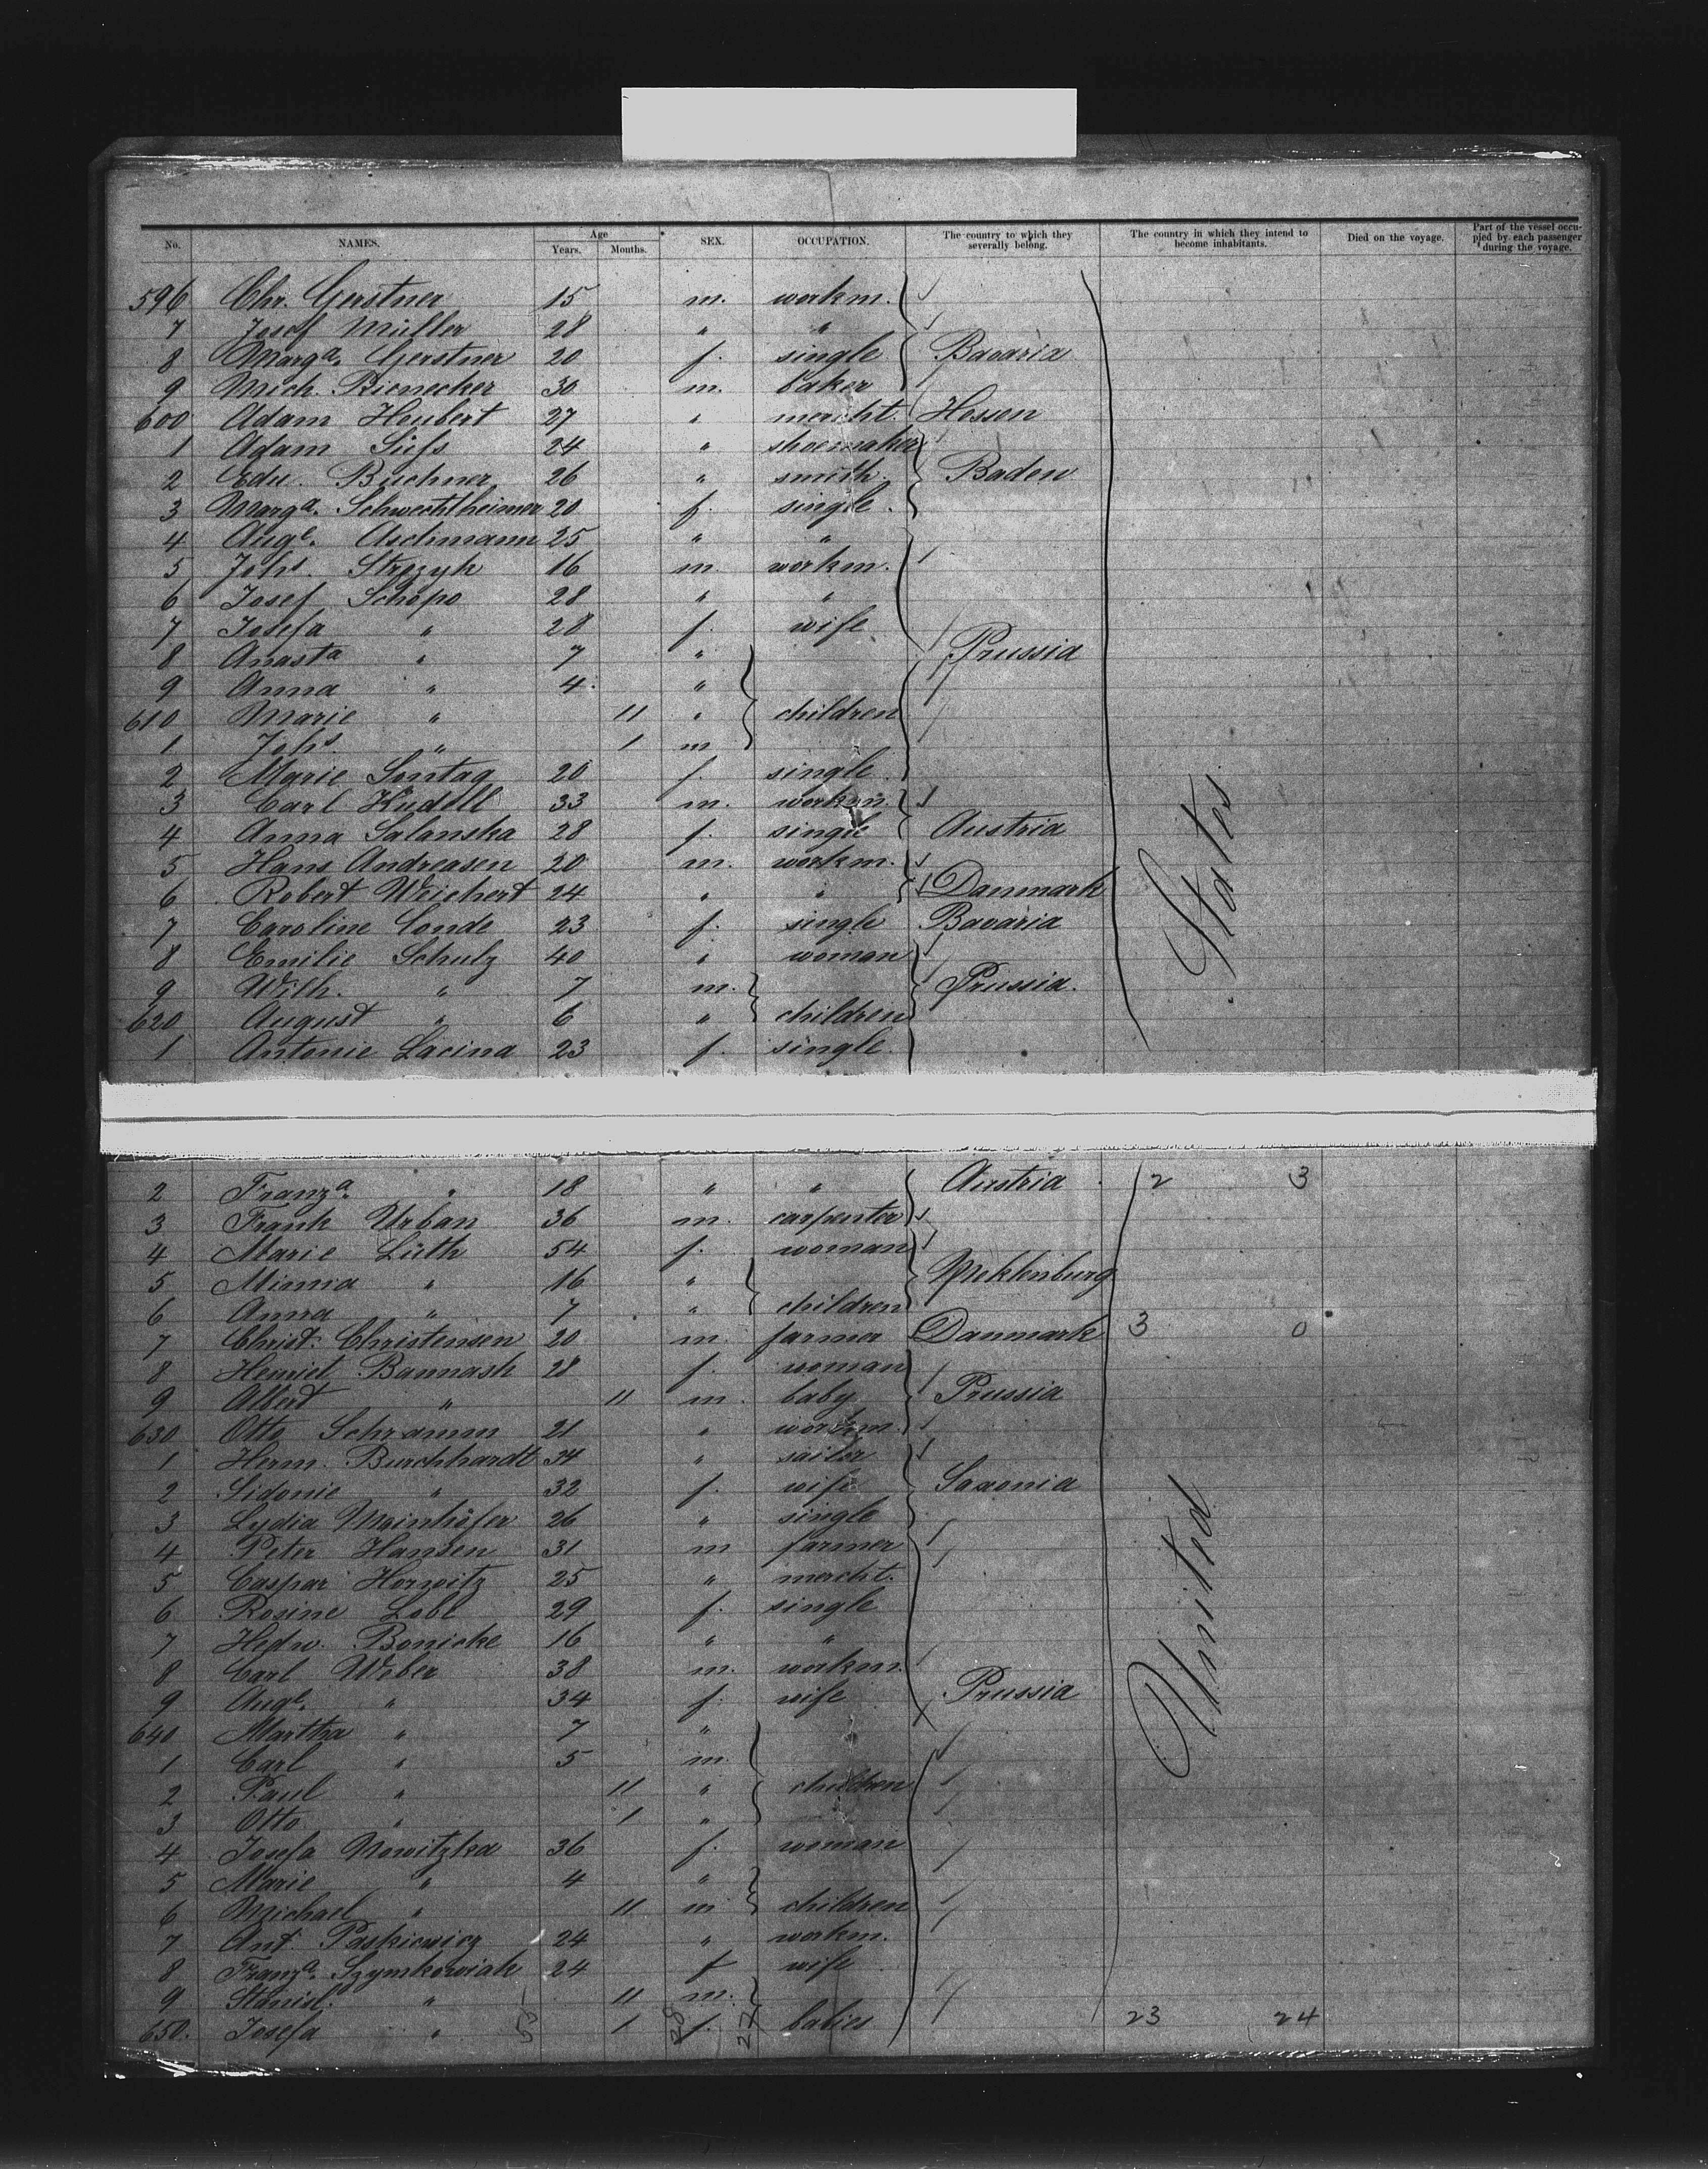 No. NAMES. Age Years. Months. SEX. OCCUPATION. The country to which they severally belong. The country in which they intend to become inhabitants. Died on the voyage. Part of the vessel occupied by each passenger during the voyage.
596 Chr. Gerstner 15 m. workm.
7 Josef Müller 28 " "
8 Marga. Gerstner 20 f. single Bavaria
9 Mich. Rienecker 30 m. baker
600 Adam Heubert 27 " mercht. Hessen
1 Adam Süfs 24 " shoemaker
2 Edu. Büchner 26 " smith. Baden
3 Marga. Schwechtheimer 20 f. single.
4 Auge. Aschmann 25 " "
5 Johs. Strozyk 16 m. workm.
6 Josef Schopo 28 " "
7 Josefa " 28 f. wife
8 Anasta " 7 " Prussia
9 Anna " 4. "
610 Marie " 11 " children
1 Johs. " 1 m
2 Marie Sontag 20 f. single
3 Carl Kudell 33 m. workm.
4 Anna Salanska 28 f. single Austria
5 Hans Andreasen 20 m. workm.
6 Robert Weichert 24 " " Danmark
7 Caroline Conde 23 f. single Bavaria
8 Emilie Schulz 40 " woman
9 Wilh. " 7 m. Prussia.
620 August " 6 " children
1 Antonie Lacina 23 f. single.
States
2 Franza. " 18 " " Austria 2 3
3 Frank Urban 36 m. carpenter
4 Marie Lüth 54 f. woman
5 Minna " 16 " Meklenburg
6 Anna " 7 " children
7 Christ. Christensen 20 m. farmer Danmark 3 0
8 Henriet Bannash 28 f. woman
9 Albert " 11 m. baby Prussia
630 Otto Schramm 21 " workm.
1 Herm. Burchhardt 34 " sailor
2 Sidonie " 32 f. wife Saxonia
3 Lydia Meinhöfer 26 " single
4 Peter Hansen 31 m farmer
5 Caspar Horwitz 25 " mercht.
6 Rosine Lobl 29 f. single
7 Hedw. Bonicke 16 " "
8 Carl Weber 38 m. workm.
9 Auge. " 34 f. wife Prussia
640 Martha " 7 "
1 Carl " 5 m.
2 Paul " 11 " children
3 Otto " 1 "
4 Josefa Nowitzka 36 f. woman
5 Marie " 4 "
6 Michael " 11 m children
7 Ant. Paskiewicz 24 " workm.
8 Franza. Szymkowiak 24 f wife
9 Stanisl. " 11 m.
650. Josefa " 55 1 28 f. 27 babies 23 24
United